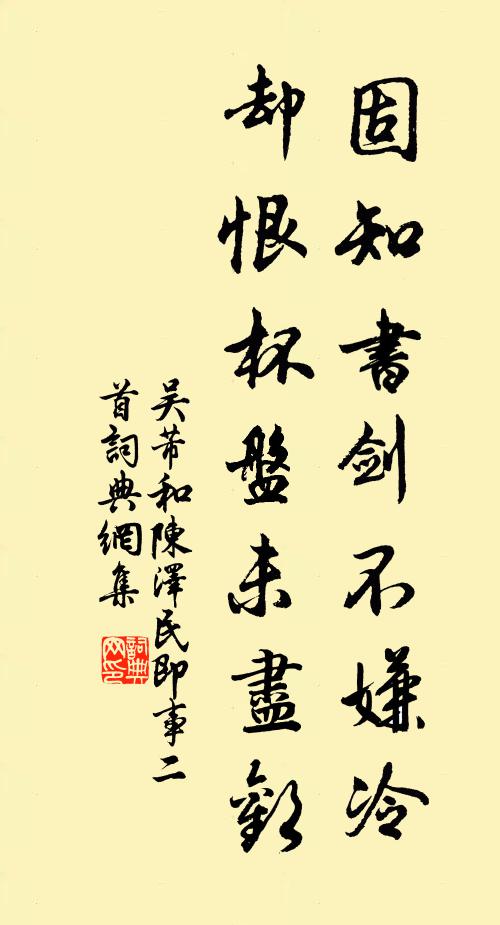 固知書劍不嫌冷
却恨杯盤未盡歡
吴芾和陳澤民即事二
首詞典網集
詞典
网印